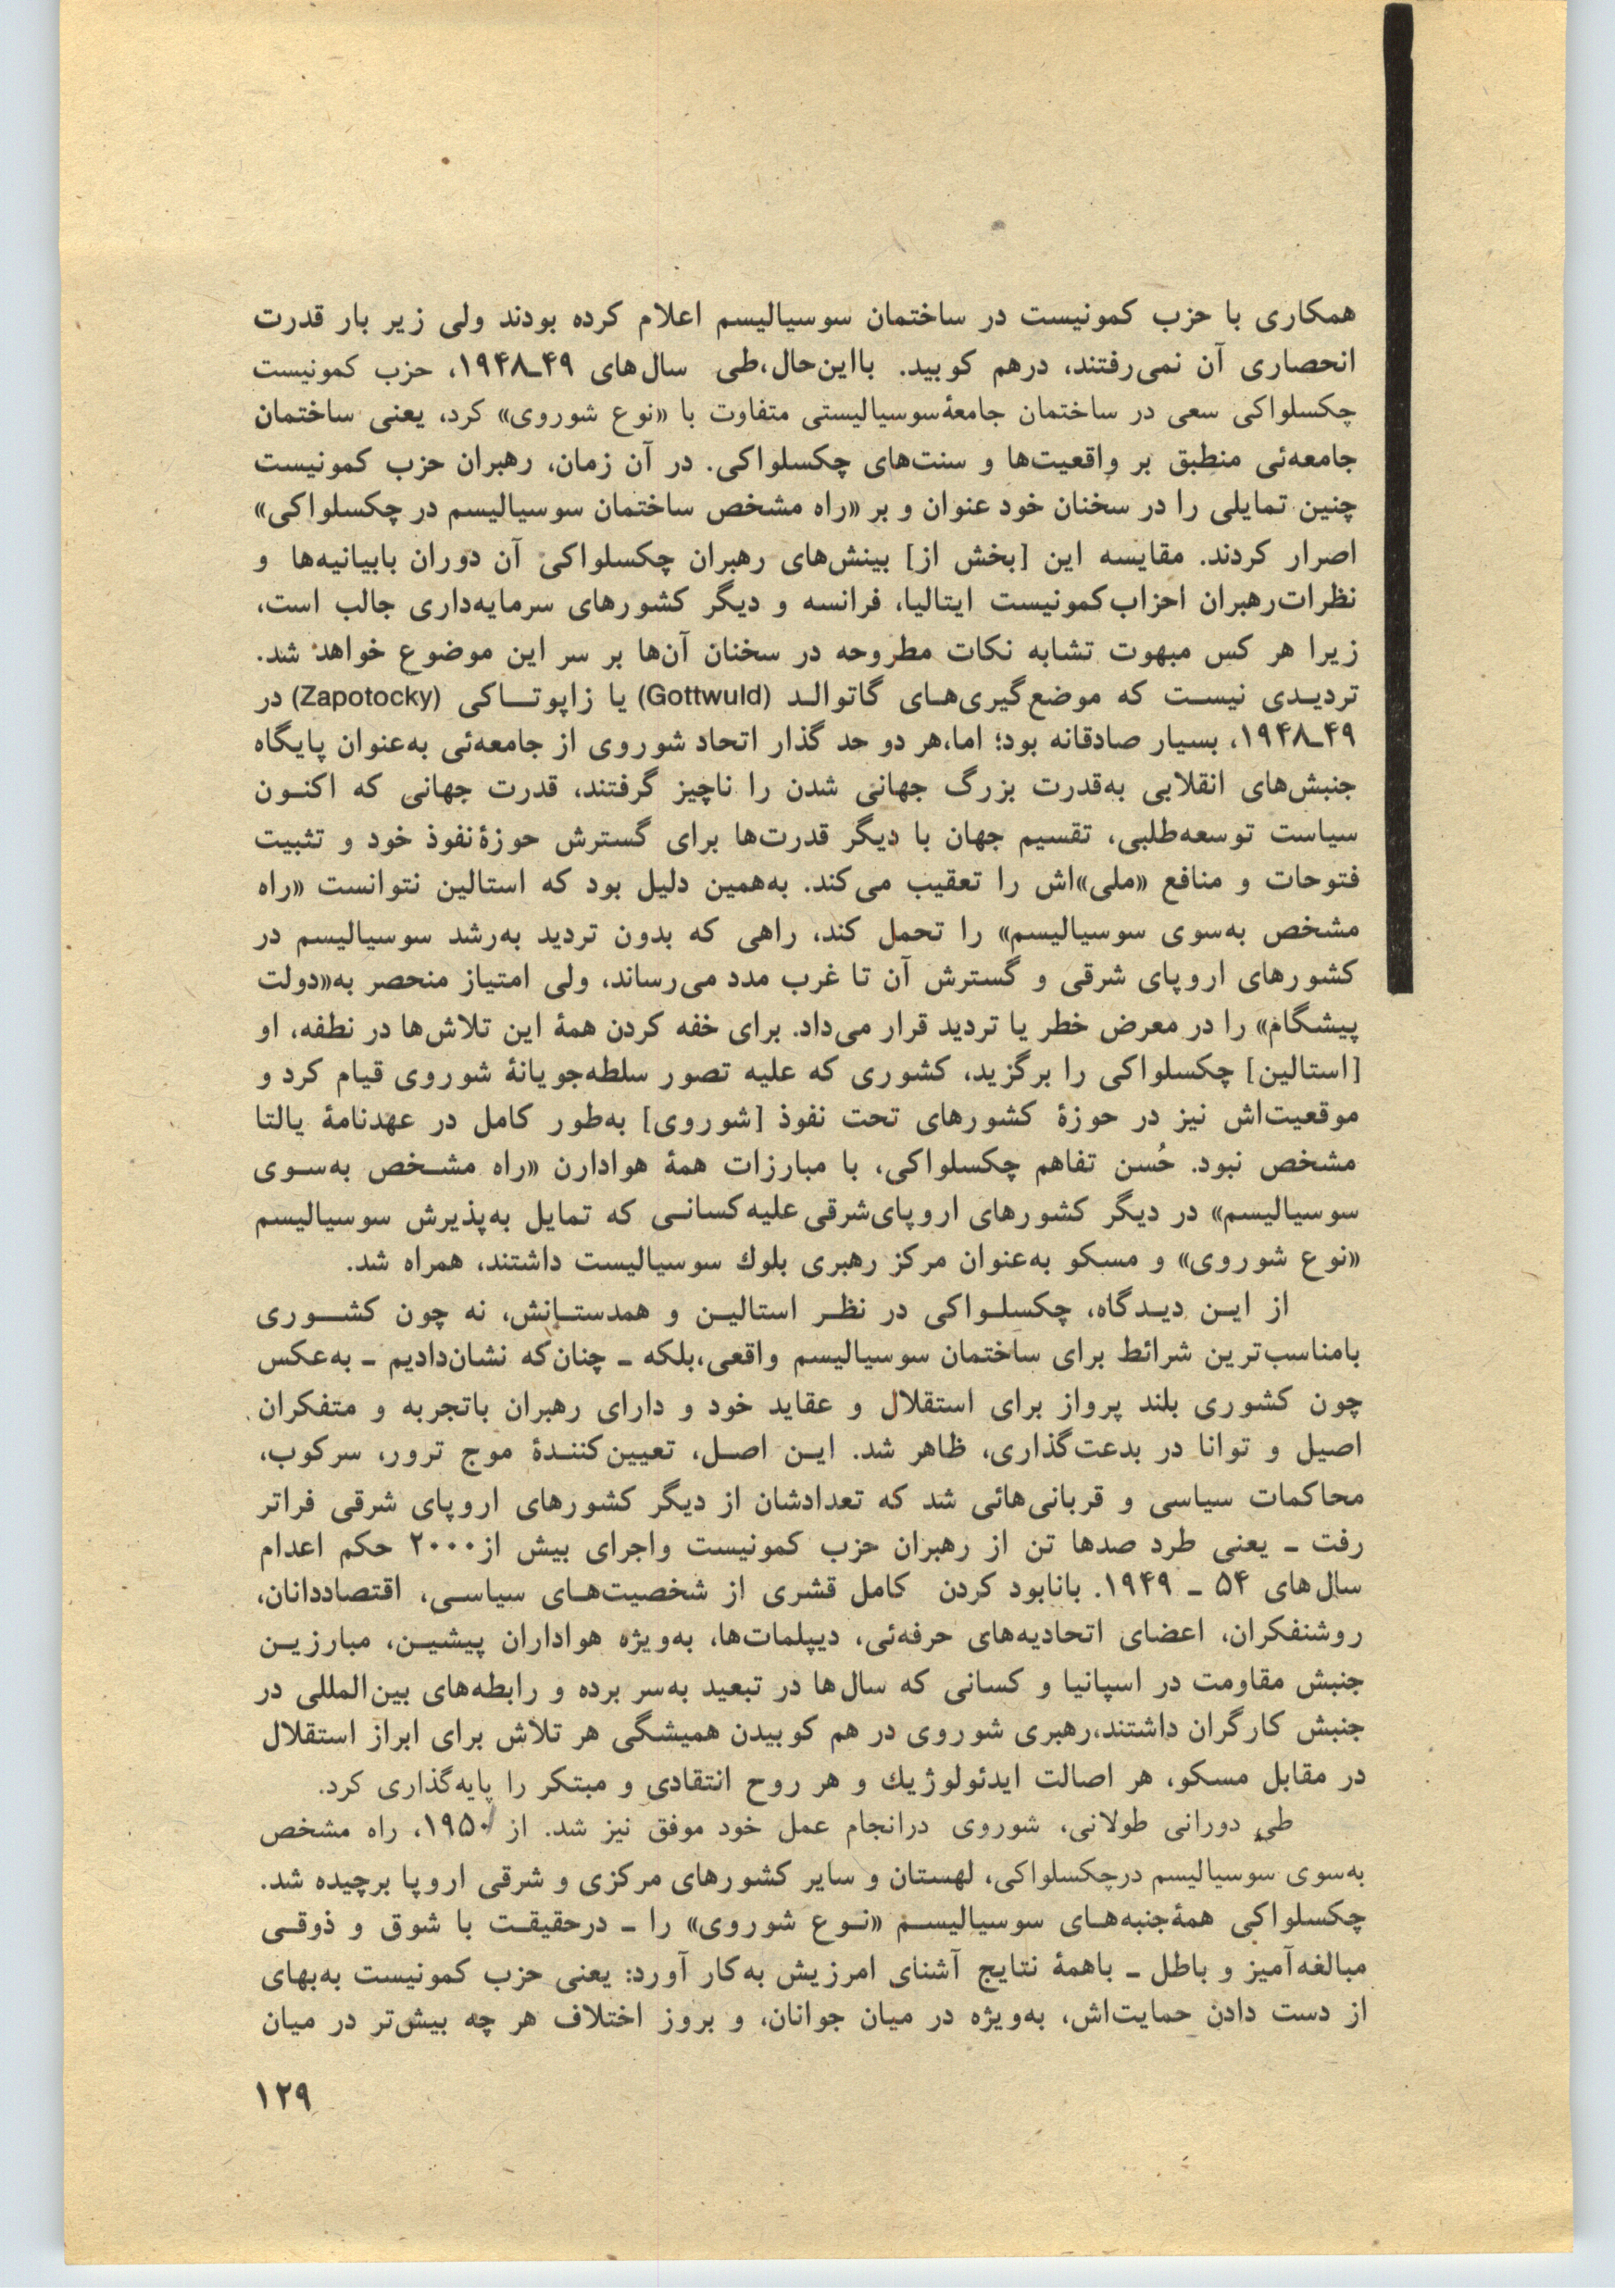 همکاری با حزب کمونیست در ساختمان سوسیالیسم اعلام کرده بودند ولی زیر بار قدرت
انحصاری آن نمی‌رفتند، درهم کوبید. بااین‌حال،طی سال‌های ۴۹ـ۱۹۴۸، حزب کمونیست
چکسلواکی سعی در ساختمان جامعهٔ‌سوسیالیستی متفاوت با «نوع شوروی» کرد، یعنی ساختمان
جامعه‌ئی منطبق بر واقعیت‌ها و سنت‌های چکسلواکی. در آن زمان، رهبران حزب کمونیست
چنین تمایلی را در سخنان خود عنوان و بر «راه مشخص ساختمان سوسیالیسم در چکسلواکی»
اصرار کردند. مقایسه این [بخش از] بینش‌های رهبران چکسلواکی آن دوران بابیانیه‌ها و
نظرات‌رهبران احزاب‌کمونیست ایتالیا، فرانسه و دیگر کشورهای سرمایه‌داری جالب است،
زیرا هر کس مبهوت تشابه نکات مطروحه در سخنان آن‌ها بر سر این موضوع خواهد شد.
تردیـدی نیسـت که موضع‌گیری‌هـای گاتوالـد (Gottwuld) یا زاپوتـاکی (Zapotocky) در
۴۹ـ۱۹۴۸، بسیار صادقانه بود؛ اما،هر دو حد گذار اتحاد شوروی از جامعه‌ئی به‌عنوان پایگاه
جنبش‌های انقلابی به‌قدرت بزرگ جهانی شدن را ناچیز گرفتند، قدرت جهانی که اکنـون
سیاست توسعه‌طلبی، تقسیم جهان با دیگر قدرت‌ها برای گسترش حوزهٔ‌نفوذ خود و تثبیت
فتوحات و منافع «ملی»اش را تعقیب می‌کند. به‌همین دلیل بود که استالین نتوانست «راه
مشخص به‌سوی سوسیالیسم» را تحمل کند، راهی که بدون تردید به‌رشد سوسیالیسم در
کشورهای اروپای شرقی و گسترش آن تا غرب مدد می‌رساند، ولی امتیاز منحصر به«دولت
پیشگام» را در معرض خطر یا تردید قرار می‌داد. برای خفه کردن همهٔ این تلاش‌ها در نطفه، او
[استالین] چکسلواکی را برگزید، کشوری که علیه تصور سلطه‌جویانهٔ شوروی قیام کرد و
موقعیت‌اش نیز در حوزهٔ کشورهای تحت نفوذ [شوروی] به‌طور کامل در عهدنامهٔ یالتا
مشخص نبود. حُسن تفاهم چکسلواکی، با مبارزات همهٔ هوادارن «راه مشـخص به‌سـوی
سوسیالیسم» در دیگر کشورهای اروپای‌شرقی علیه‌کسانـی که تمایل به‌پذیرش سوسیالیسم
«نوع شوروی» و مسکو به‌عنوان مرکز رهبری بلوك سوسیالیست داشتند، همراه شد.
از ایـن دیـدگاه، چکسلـواکی در نظـر استالیـن و همدستـانش، نه چون کشـوری
بامناسب‌ترین شرائط برای ساختمان سوسیالیسم واقعی،بلکه ـ چنان‌که نشان‌دادیم ـ به‌عکس
چون کشوری بلند پرواز برای استقلال و عقاید خود و دارای رهبران باتجربه و متفکران
اصیل و توانا در بدعت‌گذاری، ظاهر شد. ایـن اصـل، تعیین‌کننـدهٔ موج ترور، سرکوب،
محاکمات سیاسی و قربانی‌هائی شد که تعدادشان از دیگر کشورهای اروپای شرقی فراتر
رفت ـ یعنی طرد صدها تن از رهبران حزب کمونیست واجرای بیش از۲۰۰۰ حکم اعدام
سال‌های ۵۴ ـ ۱۹۴۹. بانابود کردن کامل قشری از شخصیت‌هـای سیاسـی، اقتصاددانان،
روشنفکران، اعضای اتحادیه‌های حرفه‌ئی، دیپلمات‌ها، به‌ویژه هواداران پیشیـن، مبارزیـن
جنبش مقاومت در اسپانیا و کسانی که سال‌ها در تبعید به‌سر برده و رابطه‌های بین‌المللی در
جنبش کارگران داشتند،رهبری شوروی در هم کوبیدن همیشگی هر تلاش برای ابراز استقلال
در مقابل مسکو، هر اصالت ایدئولوژیك و هر روح انتقادی و مبتکر را پایه‌گذاری کرد.
طی دورانی طولانی، شوروی درانجام عمل خود موفق نیز شد. از ۱۹۵۰، راه مشخص
به‌سوی سوسیالیسم درچکسلواکی، لهستان و سایر کشورهای مرکزی و شرقی اروپا برچیده شد.
چکسلواکی همهٔ‌جنبه‌هـای سوسیالیسـم «نـوع شوروی» را ـ درحقیقـت با شوق و ذوقـی
مبالغه‌آمیز و باطل ـ باهمهٔ نتایج آشنای امرزیش به‌کار آورد: یعنی حزب کمونیست به‌بهای
از دست دادن حمایت‌اش، به‌ویژه در میان جوانان، و بروز اختلاف هر چه بیش‌تر در میان
۱۲۹